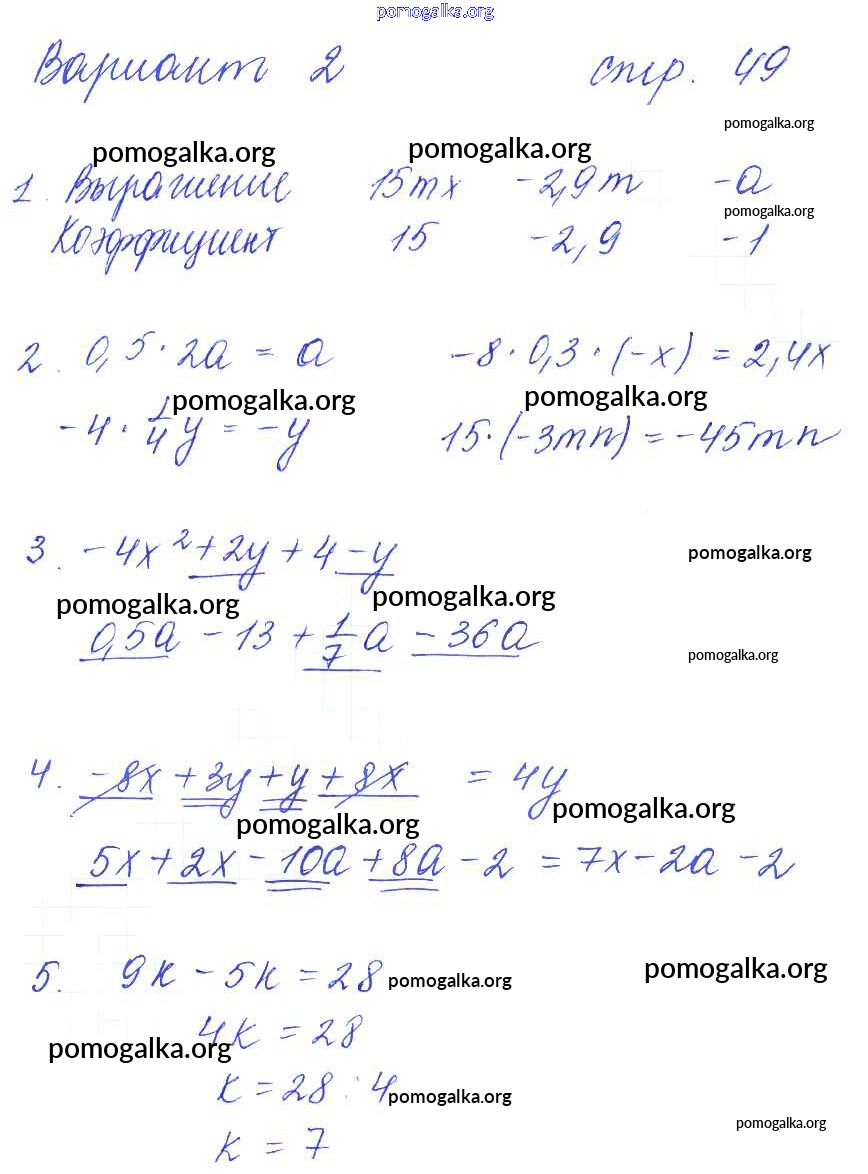 pomogalka.org
Вариант 2 стр. 49
pomogalka.org
pomogalka.org pomogalka.org
1. Выражение 15mx -2,9m -a
pomogalka.org
Коэффициент 15 -2,9 -1
2. 0,5·2a = a -8·0,3·(-x) = 2,4x
pomogalka.org pomogalka.org
-4·1/4y = -y 15·(-3mn) = -45mn
3. -4x²+2y+4-y pomogalka.org
pomogalka.org pomogalka.org
0,5a - 13 + 1/7a - 36a pomogalka.org
4. -8x+3y+y+8x = 4y
pomogalka.org
pomogalka.org
5x+2x-10a+8a-2 = 7x-2a-2
5. 9k - 5k = 28 pomogalka.org pomogalka.org
4k = 28
pomogalka.org
k = 28 : 4 pomogalka.org
pomogalka.org
k = 7